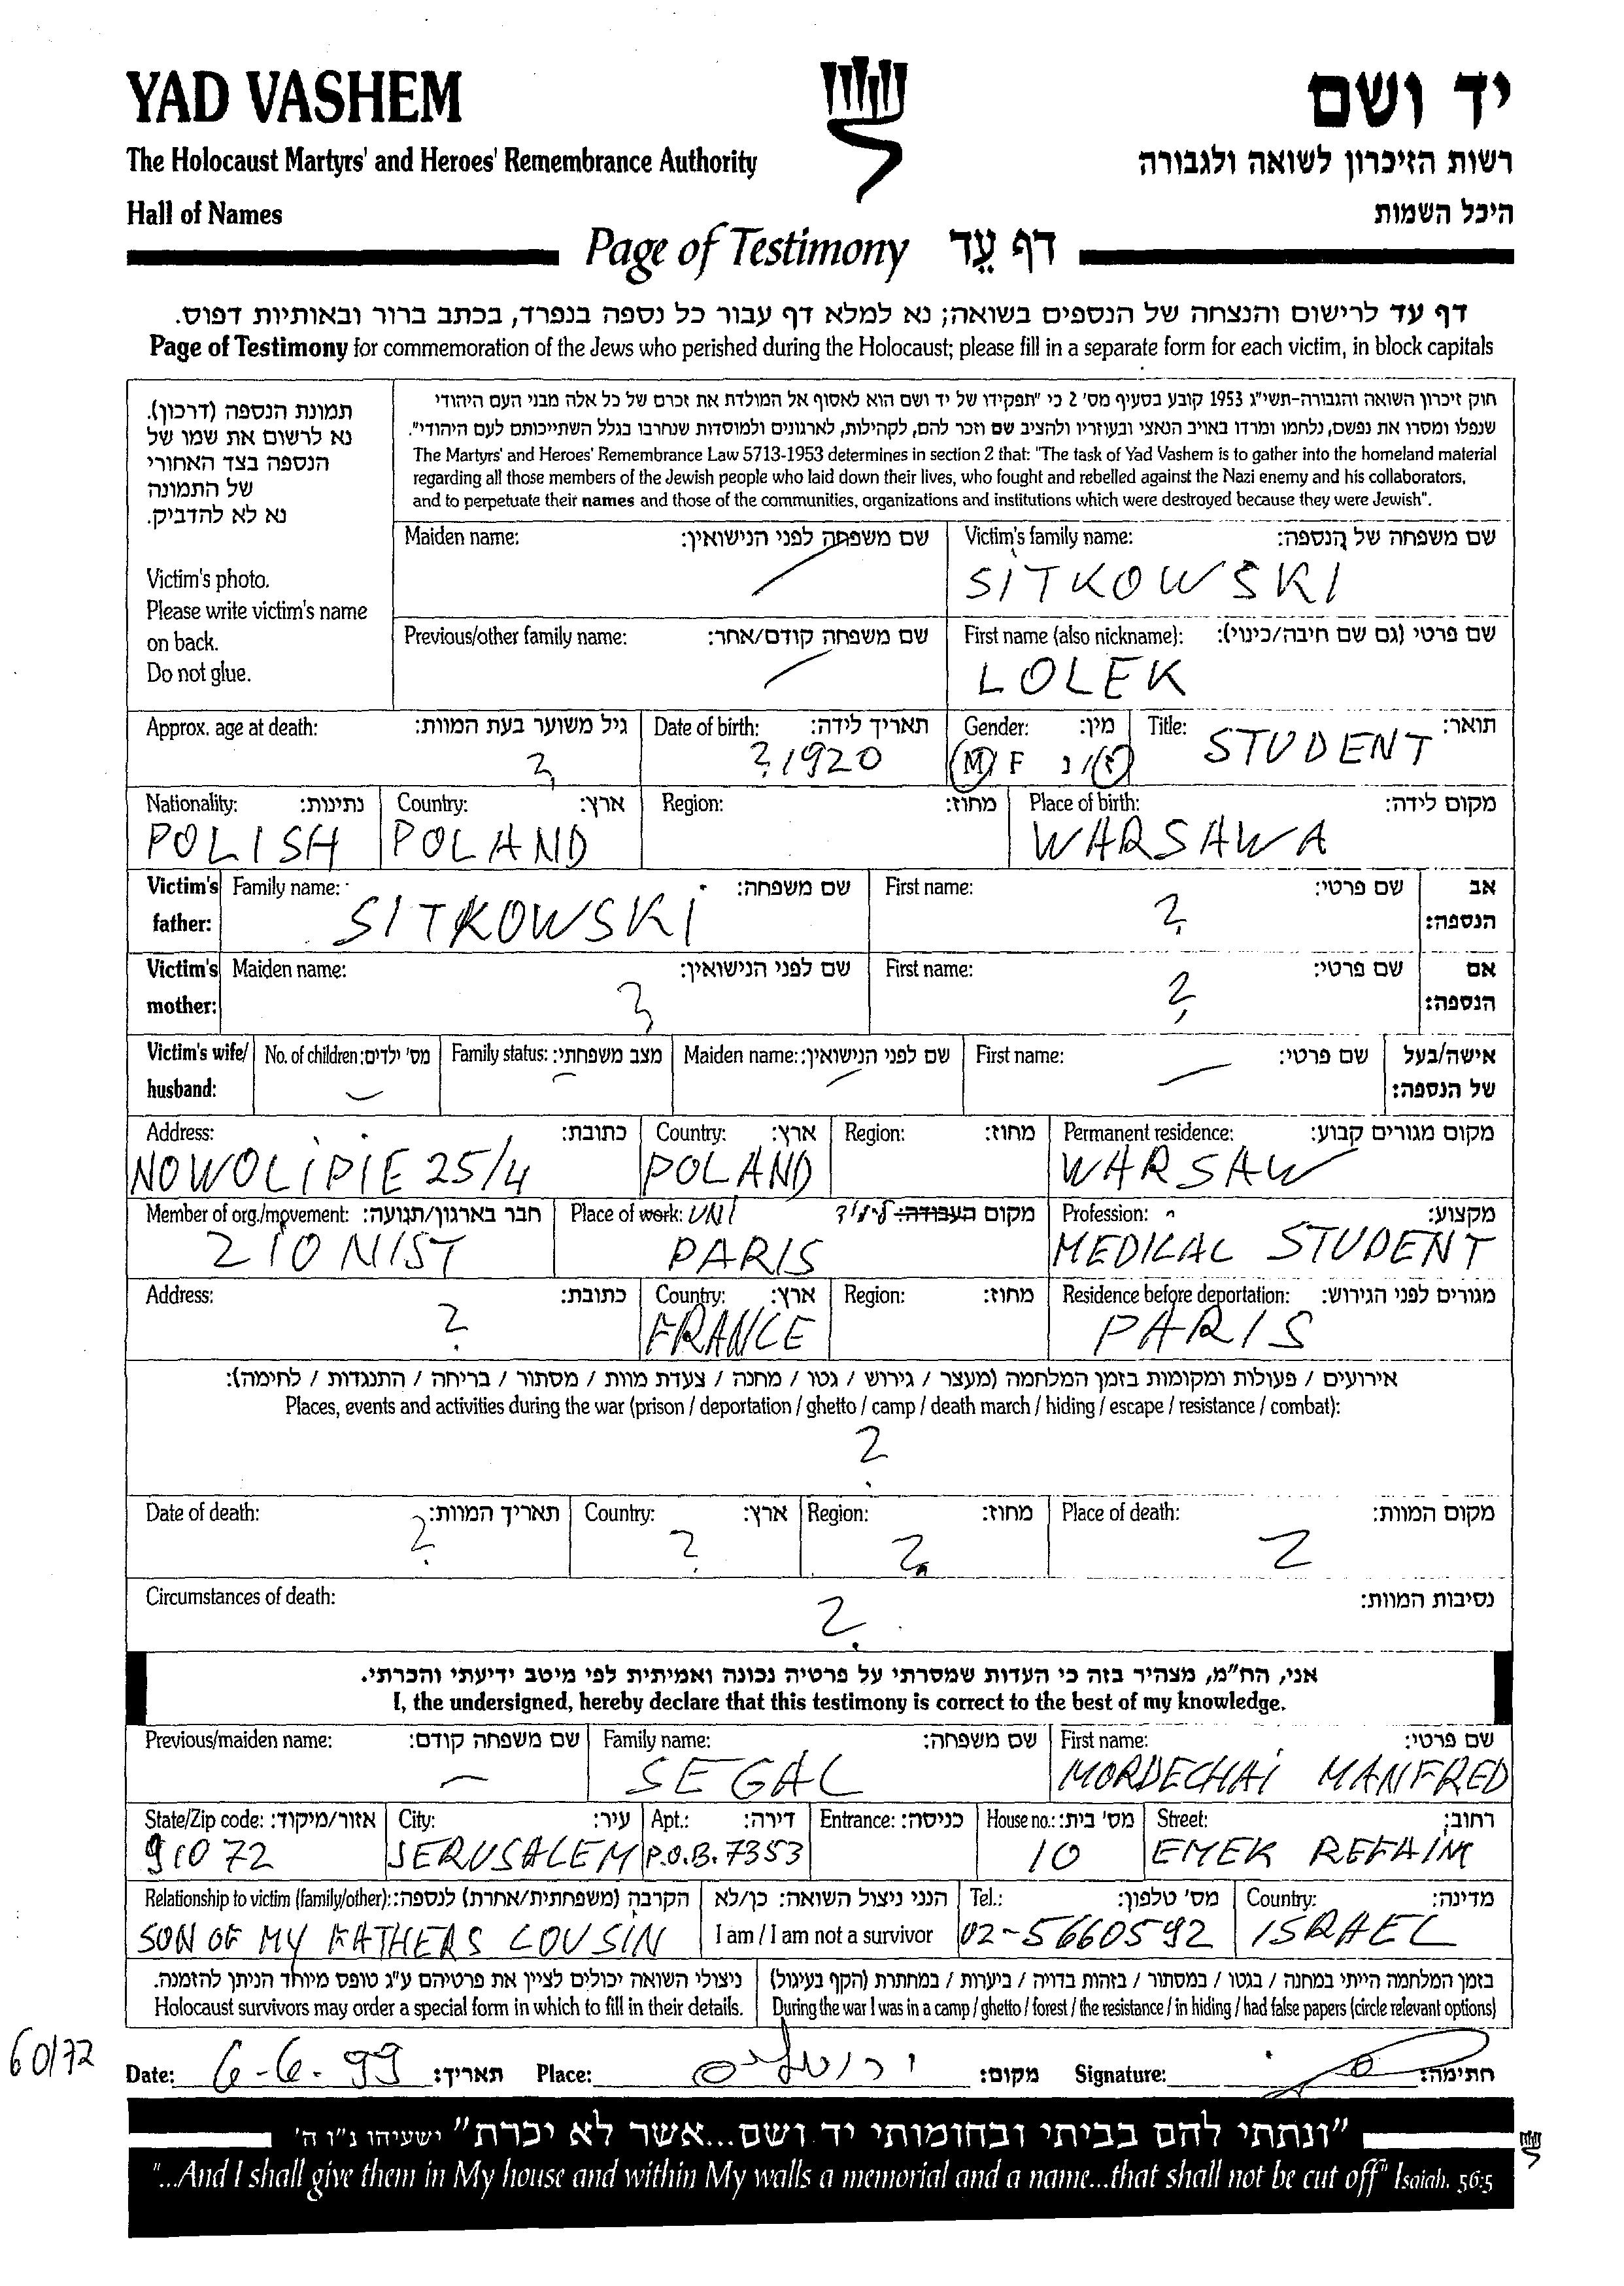 YAD VASHEM
יד ושם
The Holocaust Martyrs' and Heroes' Remembrance Authority
רשות הזיכרון לשואה ולגבורה
Hall of Names
היכל השמות
Page of Testimony דף עֵד
דף עד לרישום והנצחה של הנספים בשואה; נא למלא דף עבור כל נספה בנפרד, בכתב ברור ובאותיות דפוס.
Page of Testimony for commemoration of the Jews who perished during the Holocaust; please fill in a separate form for each victim, in block capitals
תמונת הנספה (דרכון).
נא לרשום את שמו של
הנספה בצד האחורי
של התמונה
נא לא להדביק.
Victim's photo.
Please write victim's name
on back.
Do not glue.
חוק זיכרון השואה והגבורה-תשי"ג 1953 קובע בסעיף מס' 2 כי "תפקידו של יד ושם הוא לאסוף אל המולדת את זכרם של כל אלה מבני העם היהודי
שנפלו ומסרו את נפשם, נלחמו ומרדו באויב הנאצי ובעוזריו ולהציב שם וזכר להם, לקהילות, לארגונים ולמוסדות שנחרבו בגלל השתייכותם לעם היהודי".
The Martyrs' and Heroes' Remembrance Law 5713-1953 determines in section 2 that: "The task of Yad Vashem is to gather into the homeland material
regarding all those members of the Jewish people who laid down their lives, who fought and rebelled against the Nazi enemy and his collaborators,
and to perpetuate their names and those of the communities, organizations and institutions which were destroyed because they were Jewish".
Maiden name: שם משפחה לפני הנישואין: Victim's family name: שם משפחה של הנספה:
SITKOWSKI
Previous/other family name: שם משפחה קודם/אחר: First name (also nickname): שם פרטי (גם שם חיבה/כינוי):
LOLEK
Approx. age at death: גיל משוער בעת המוות: Date of birth: תאריך לידה: Gender: מין: Title: תואר:
? ? 1920 M F ז/נ STUDENT
Nationality: נתינות: Country: ארץ: Region: מחוז: Place of birth: מקום לידה:
POLISH POLAND WARSAWA
Victim's father: Family name: שם משפחה: First name: שם פרטי: אב הנספה:
SITKOWSKI ?
Victim's mother: Maiden name: שם לפני הנישואין: First name: שם פרטי: אם הנספה:
? ?
Victim's wife/ husband: No. of children: מס' ילדים: Family status: מצב משפחתי: Maiden name: שם לפני הנישואין: First name: שם פרטי: אישה/בעל של הנספה:
Address: כתובת: Country: ארץ: Region: מחוז: Permanent residence: מקום מגורים קבוע:
NOWOLIPIE 25/4 POLAND WARSAW
Member of org./movement: חבר בארגון/תנועה: Place of work: UNI מקום העבודה: לימוד Profession: מקצוע:
ZIONIST PARIS MEDICAL STUDENT
Address: כתובת: Country: ארץ: Region: מחוז: Residence before deportation: מגורים לפני הגירוש:
? FRANCE PARIS
אירועים / פעולות ומקומות בזמן המלחמה (מעצר / גירוש / גטו / מחנה / צעדת מוות / מסתור / בריחה / התנגדות / לחימה):
Places, events and activities during the war (prison / deportation / ghetto / camp / death march / hiding / escape / resistance / combat):
?
Date of death: תאריך המוות: Country: ארץ: Region: מחוז: Place of death: מקום המוות:
? ? ? ?
Circumstances of death: נסיבות המוות:
?
אני, הח"מ, מצהיר בזה כי העדות שמסרתי על פרטיה נכונה ואמיתית לפי מיטב ידיעתי והכרתי.
I, the undersigned, hereby declare that this testimony is correct to the best of my knowledge.
Previous/maiden name: שם משפחה קודם: Family name: שם משפחה: First name: שם פרטי:
SEGAL MORDECHAI MANFRED
State/Zip code: אזור/מיקוד: City: עיר: Apt.: דירה: Entrance: כניסה: House no.: מס' בית: Street: רחוב:
91072 JERUSALEM P.O.B. 7353 10 EMEK REFAIM
Relationship to victim (family/other): הקרבה (משפחתית/אחרת) לנספה: הנני ניצול השואה: כן/לא Tel.: מס' טלפון: Country: מדינה:
SON OF MY FATHERS COUSIN I am / I am not a survivor 02-5660592 ISRAEL
ניצולי השואה יכולים לציין את פרטיהם ע"ג טופס מיוחד הניתן להזמנה.
Holocaust survivors may order a special form in which to fill in their details.
בזמן המלחמה הייתי במחנה / בגטו / במסתור / בזהות בדויה / ביערות / במחתרת (הקף בעיגול)
During the war I was in a camp / ghetto / forest / the resistance / in hiding / had false papers (circle relevant options)
60/72
Date: 6-6-99 תאריך: Place: ירושלים מקום: Signature: חתימה:
"ונתתי להם בביתי ובחומותי יד ושם...אשר לא יכרת" ישעיהו נ"ו ה'
"...And I shall give them in My house and within My walls a memorial and a name...that shall not be cut off" Isaiah. 56:5